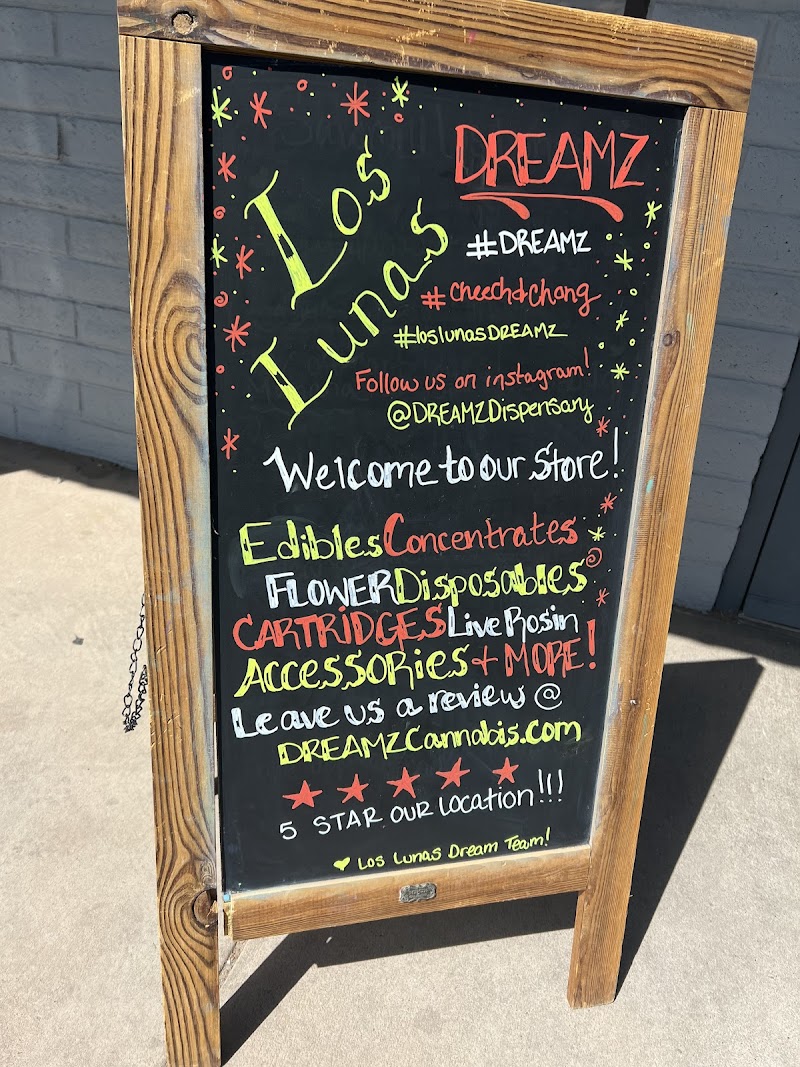 Los
Lunas
DREAMZ
#DREAMZ
#Cheech&Chong
#loslunasDREAMZ
Follow us on instagram!
@DREAMZDispensary
Welcome to our Store!
Edibles Concentrates
FLOWER Disposables
CARTRIDGES Live Rosin
ACCESSORies + MORE!
Leave us a review @
DREAMZCannabis.com
5 STAR OUR LOCATION!!!
Los Lunas Dream Team!